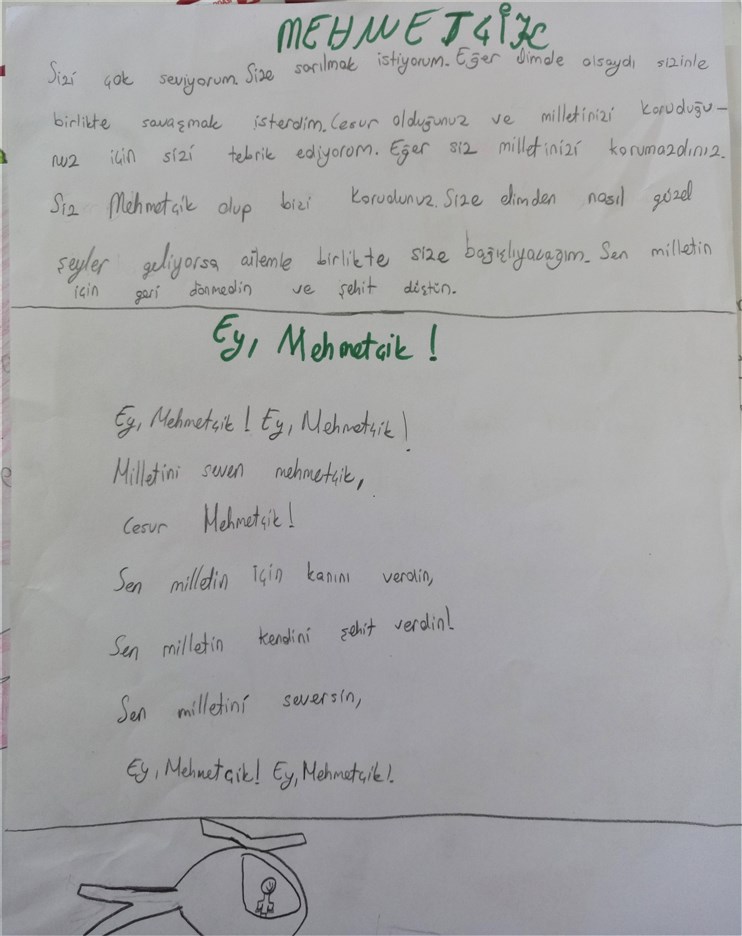 MEHMETÇİK
Sizi çok seviyorum. Size sarılmak istiyorum. Eğer elimde olsaydı sizinle
birlikte savaşmak isterdim. Cesur olduğunuz ve milletinizi koruduğu-
nuz için sizi tebrik ediyorom. Eğer siz milletinizi korumazdınız.
Siz Mehmetçik olup bizi korudunuz. Size elimden nasıl güzel
şeyler geliyorsa ailemle birlikte size bağışlıyacağım. Sen milletin
için geri dönmedin ve şehit düştün.
Ey, Mehmetçik!
Ey, Mehmetçik! Ey, Mehmetçik!
Milletini seven mehmetçik,
Cesur Mehmetçik!
Sen milletin için kanını verdin,
Sen milletin kendini şehit verdin!
Sen milletini seversin,
Ey, Mehmetçik! Ey, Mehmetçik!